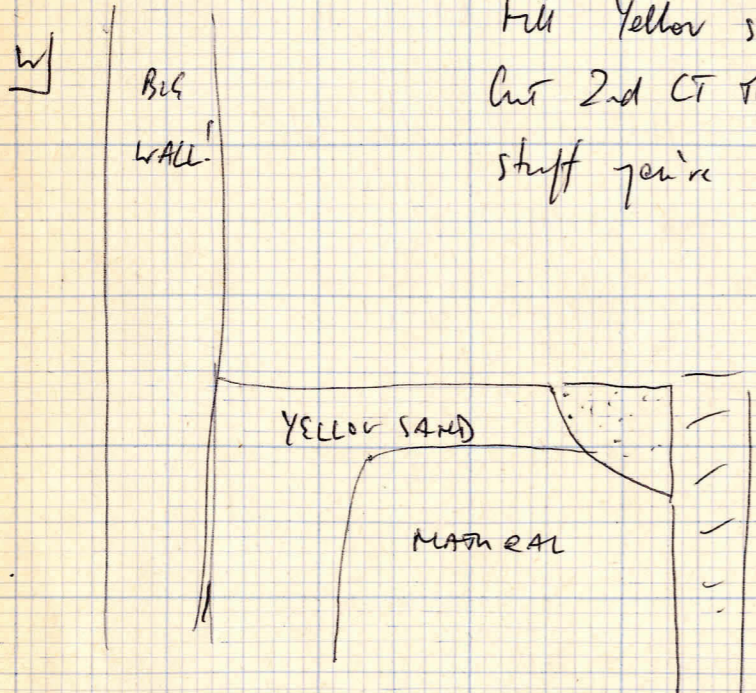 W
BIG
WALL!
till Yellow s
Cut 2nd CT
stuff you're
YELLOW SAND
NATURAL